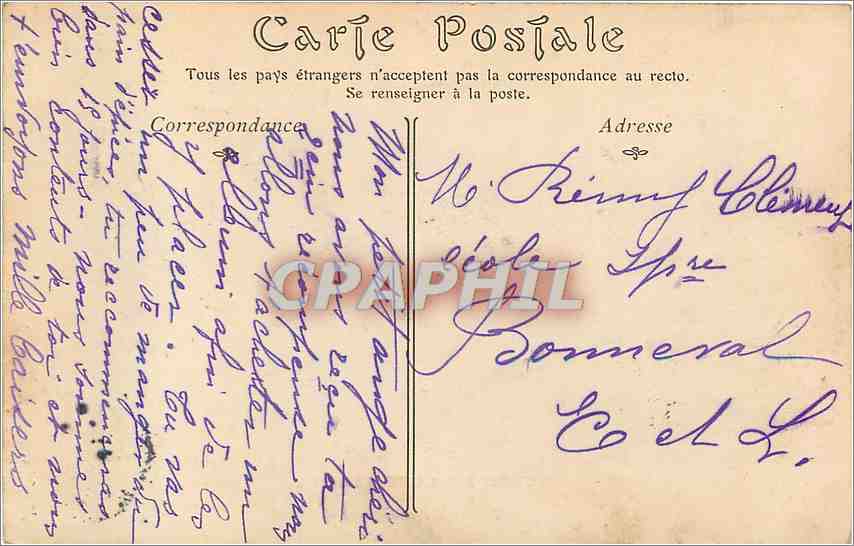 Carte Postale
Tous les pays étrangers n'acceptent pas la correspondance au recto.
Se renseigner à la poste.
Correspondance
Adresse
Mon petit ange chéri
nous avons reçu ta
récompense nous
allons t'acheter un
album afin de les
y placer. Tu vas
cesser un peu de manger du
pain d'épices, tu recommenceras
dans 15 jours - nous sommes
bien contents de toi et nous
t'envoyons mille baisers
M. Rémy Clément
école Spre
Bonneval
E et L.
CPAPHIL